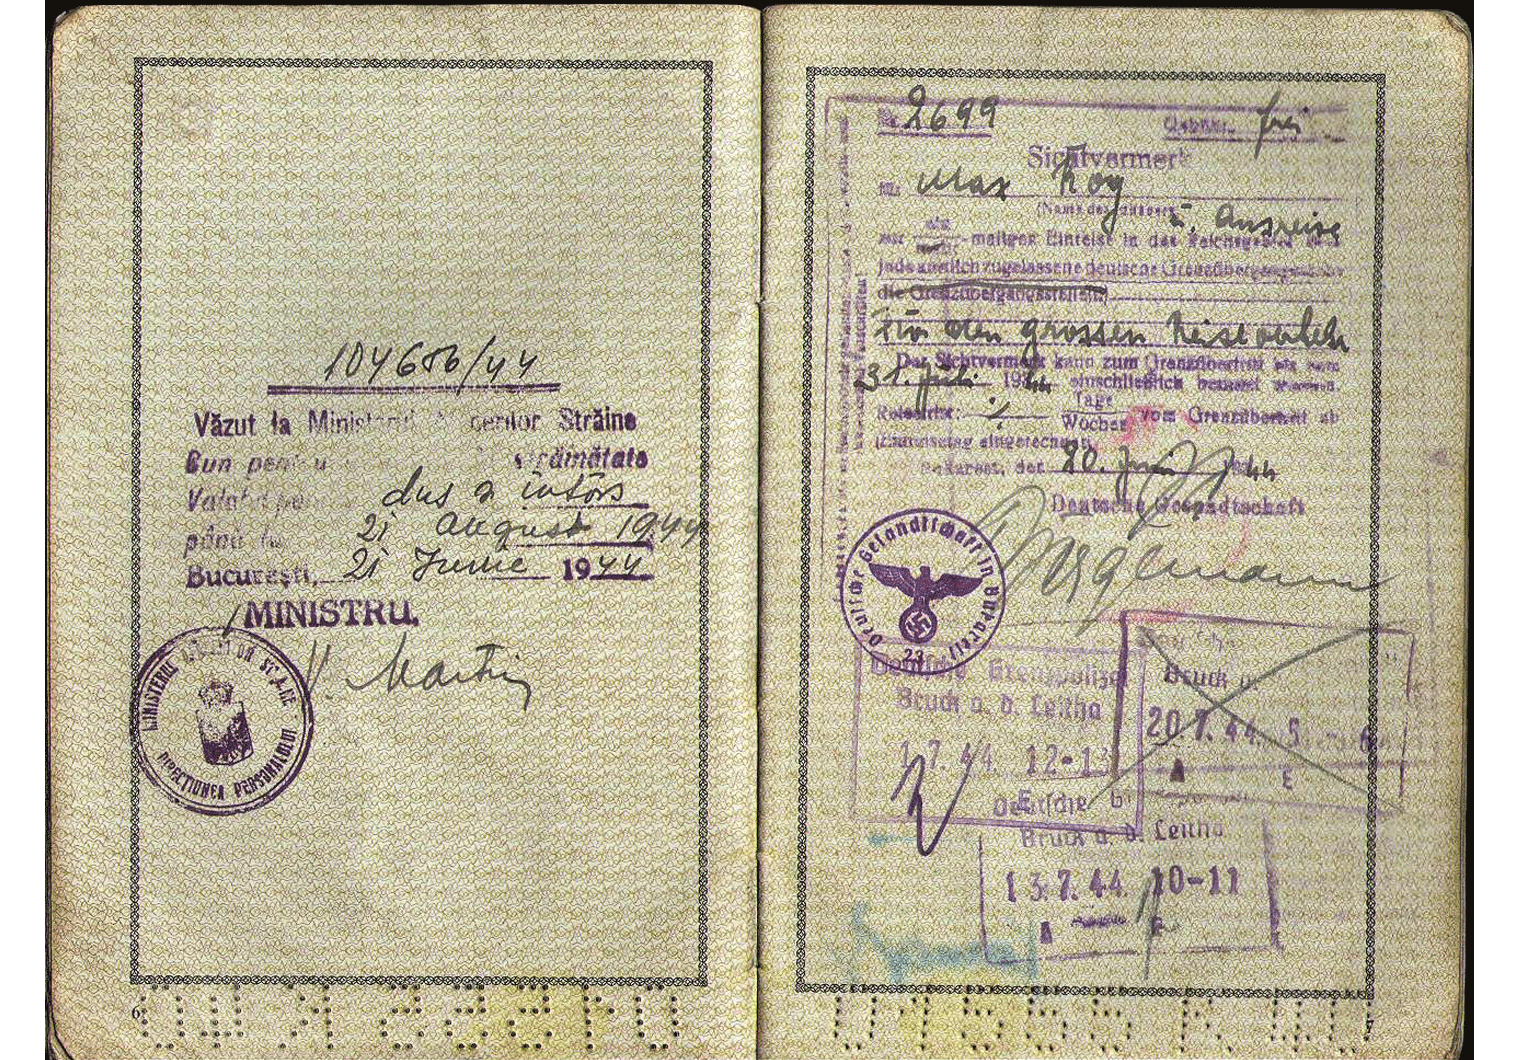 104686/44
Văzut la Ministerul Afacerilor Străine
Bun pentru străinătate
Valabil pentru dus și întors
până la 21 August 1944
București, 21 Iunie 1944
MINISTRU,
MINISTERUL ST. A-CE
DIRECȚIUNEA PERSONALULUI
6
№ 2699
Gebühr: frei
Sichtvermerk
für Max
u. Ausreise
zur -maligen Einreise in das Reichsgebiet über
jede amtlich zugelassene deutsche Grenzübergangsstelle
die Grenzübergangsstelle(n)
Für den grossen Reiseverkehr
Der Sichtvermerk kann zum Grenzübertritt bis zum
31. Juli 1944 einschließlich benutzt werden.
Tage
Reisefrist: Wochen vom Grenzübertritt ab
(Einreisetag eingerechnet)
Bukarest, den 20. Juni 1944
Deutsche Gesandtschaft
Deutsche Gesandtschaft in Bukarest
23
Deutsche Grenzpolizei
Bruck a. d. Leitha
1.7.44 12-13
E
Bruck a.
20.7.44. 5 - 6
A E
Deutsche
Bruck a. d. Leitha
13.7.44. 10-11
A E
7